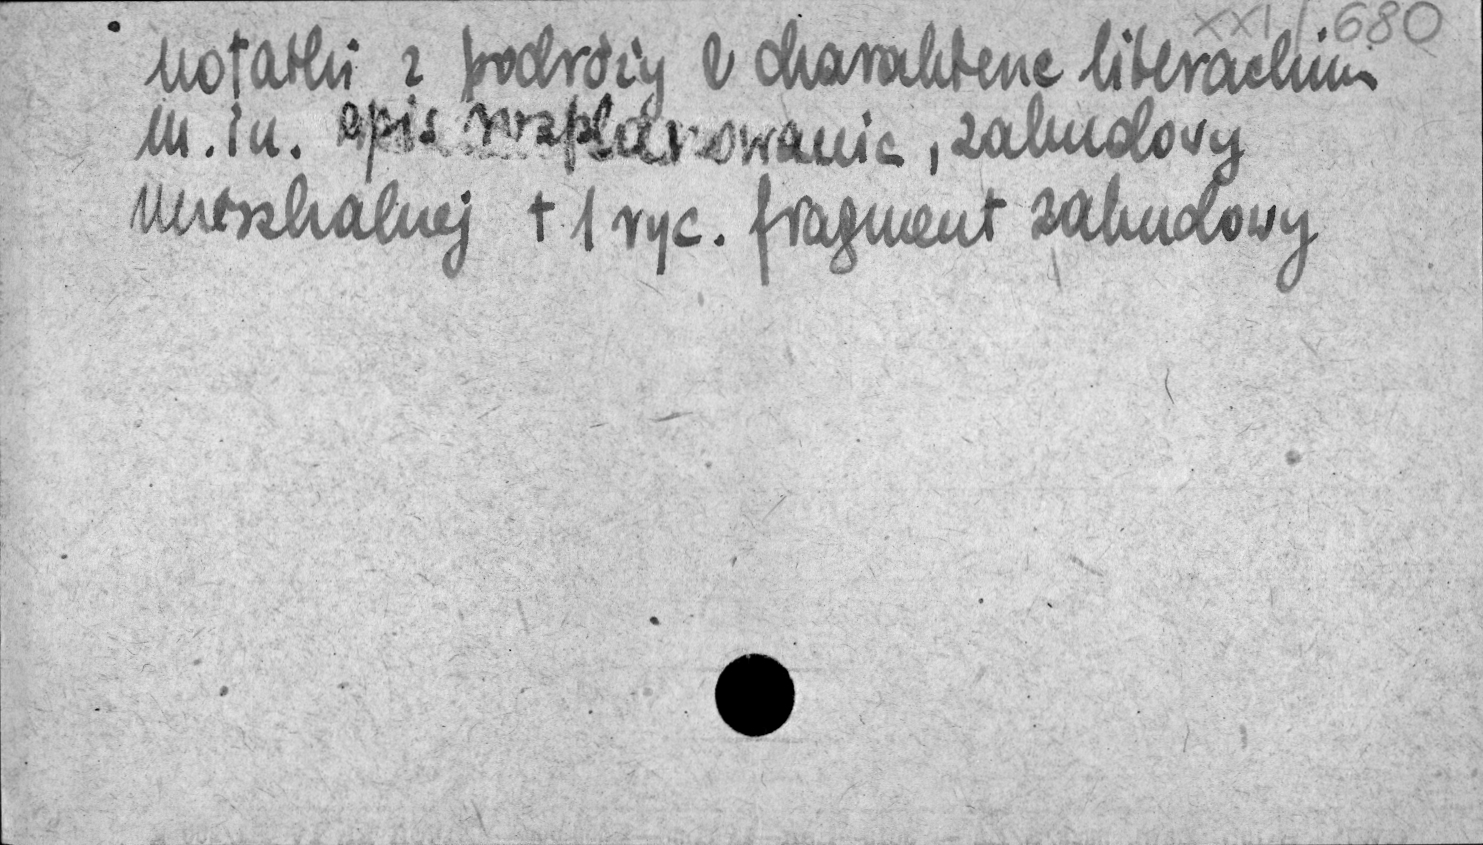 XXI / 680
notatki z podróży o charakterze literackim
m.in. opis rozplanowania, zabudowy
mieszkalnej + 1 ryc. fragment zabudowy